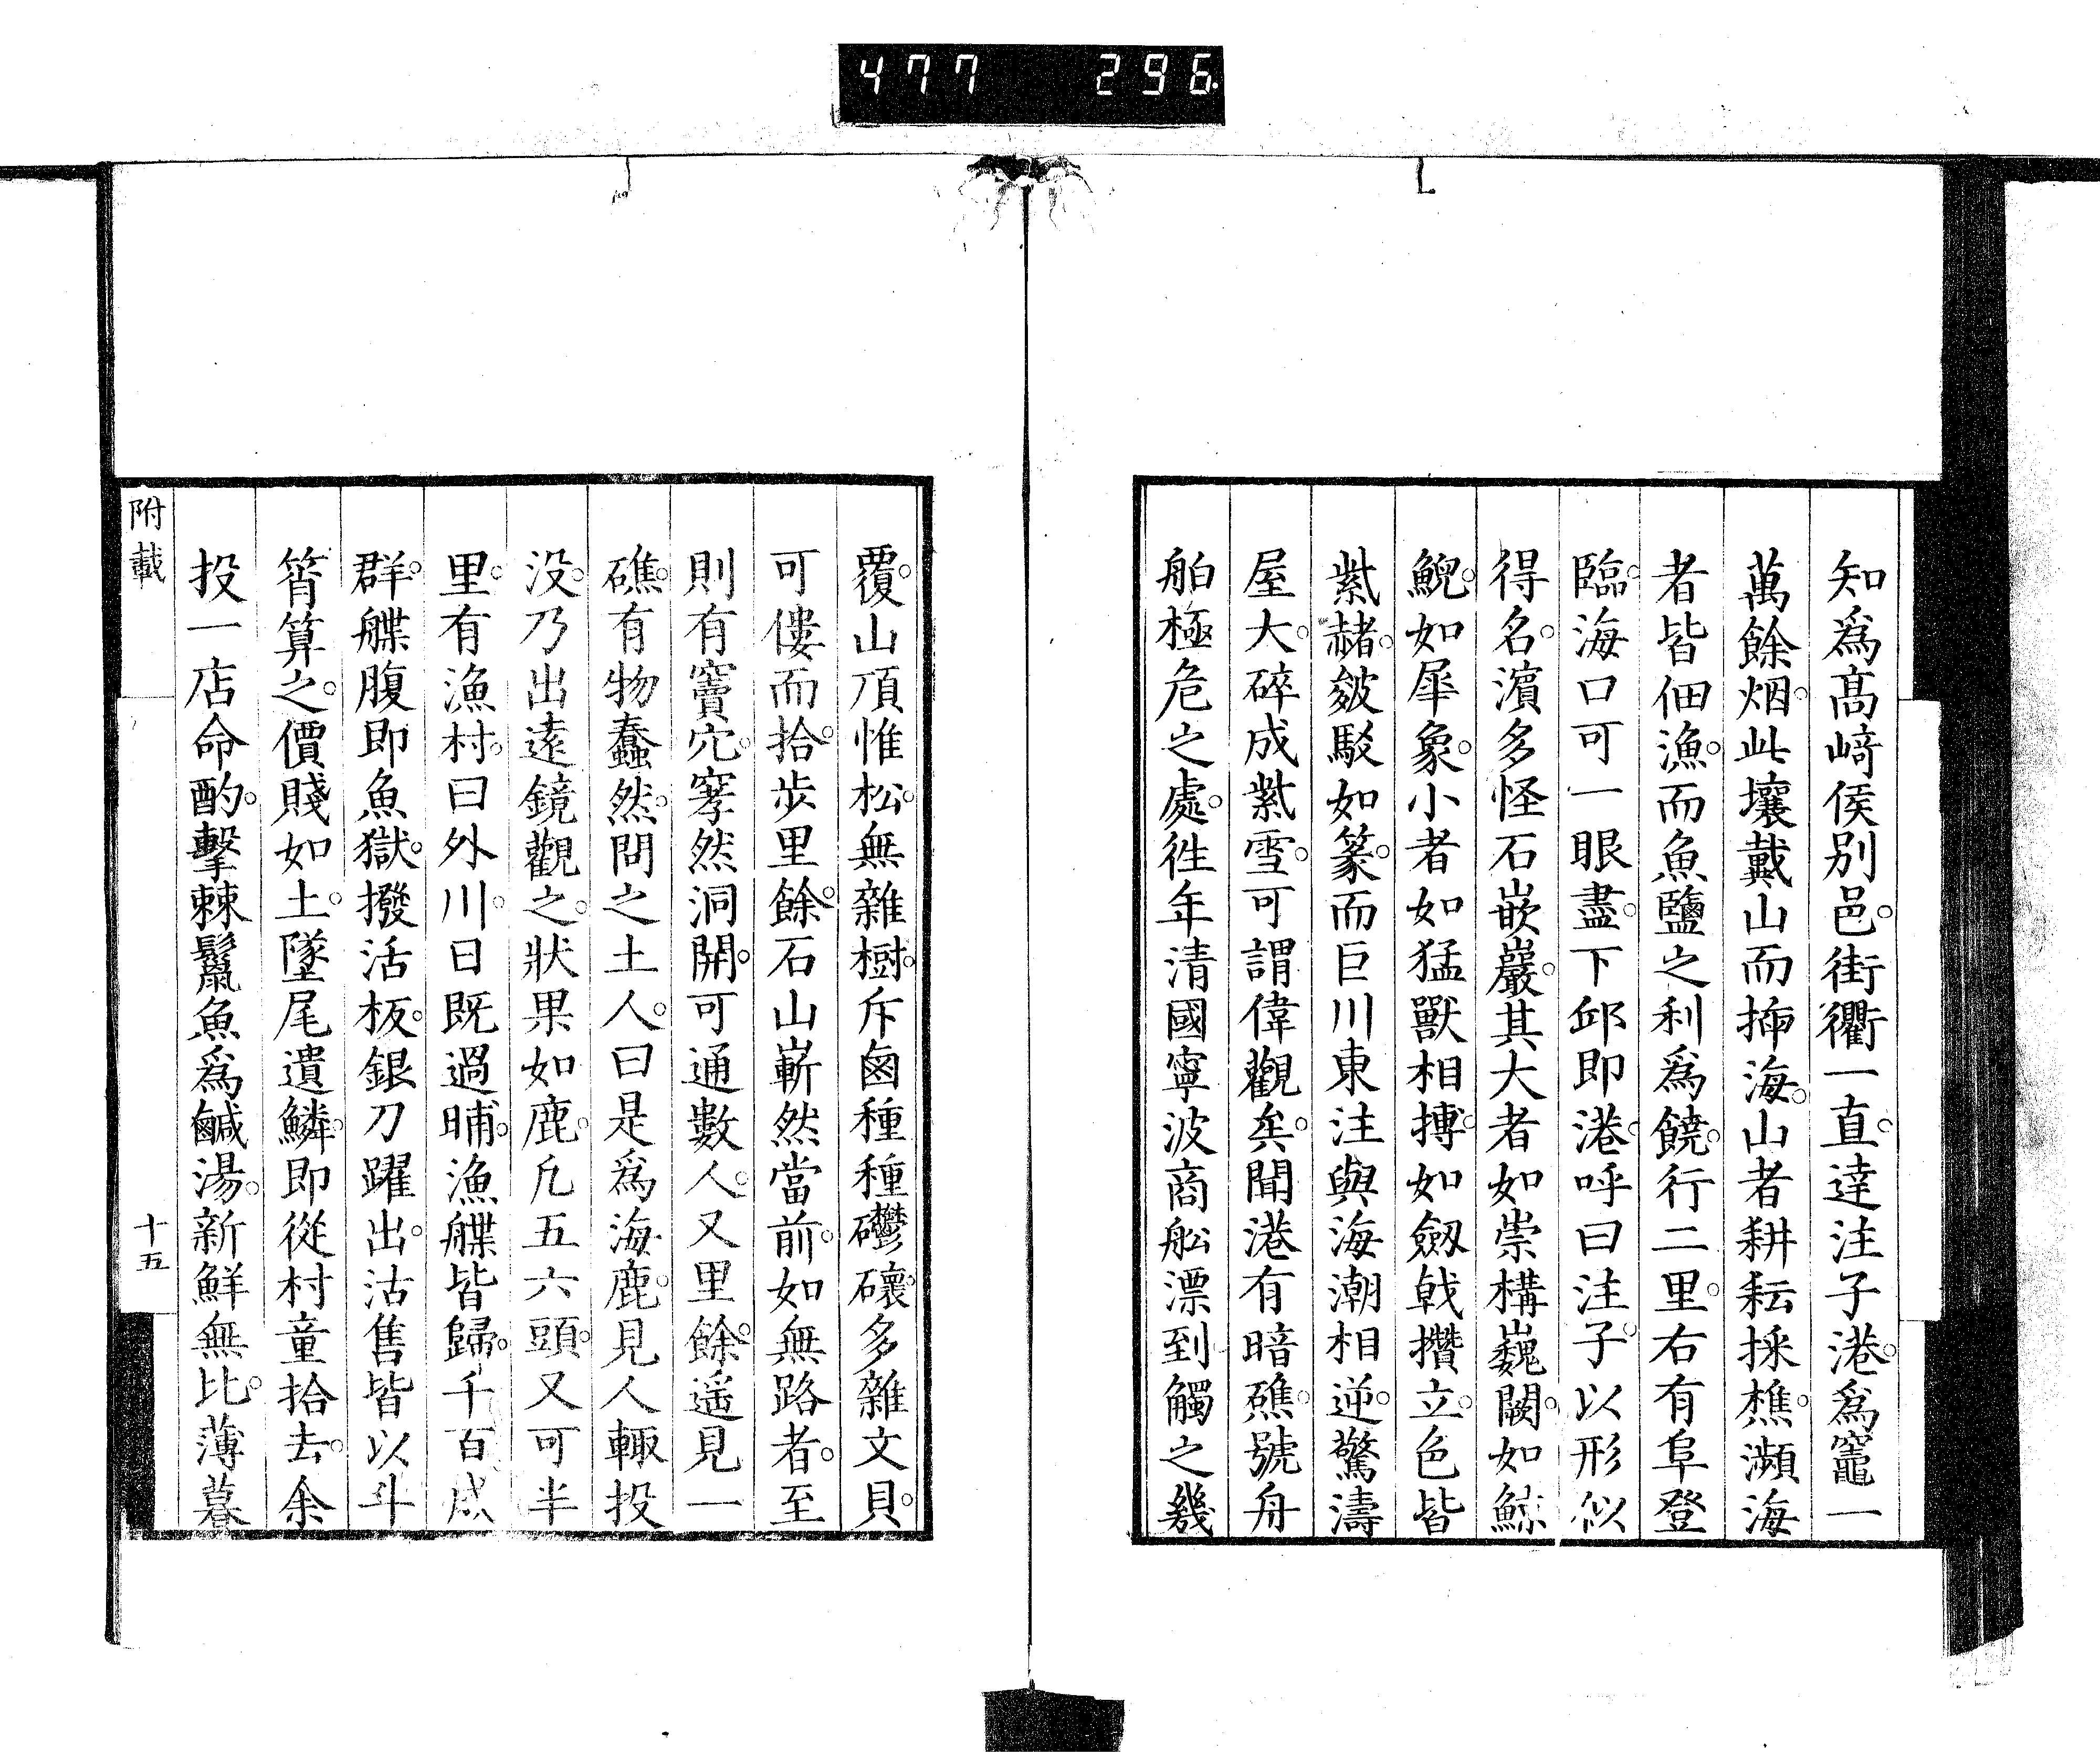 477 296
知爲高﨑侯別邑。街衢一直。達注子港。爲竈一
萬餘烟。此壤戴山而揷海。山者耕耘採樵。瀕海
者皆佃漁。而魚鹽之利爲饒。行二里。右有阜登
臨。海口可一眼盡。下邱即港。呼曰注子。以形似
得名。濵多怪石嵌巖。其大者如崇構巍闕。如鯨
鯢。如犀象。小者如猛獸相搏。如劔戟攢立。色皆
紫赭。皴駁如篆。而巨川東注與海潮相逆。驚濤
屋大。碎成紫雪。可謂偉觀矣。聞港有暗礁。號舟
舶極危之處。徃年清國寧波商舩漂到觸之幾
覆。山頂惟松。無雜樹。斥鹵種種礬礰多雜文貝。
可僂而拾。步里餘。石山嶄然當前。如無路者。至
則有竇穴。窣然洞開。可通數人。又里餘。遥見一
礁。有物蠢然。問之土人。曰是爲海鹿。見人輙投
没。乃出遠鏡觀之。狀果如鹿。凢五六頭。又可半
里。有漁村。曰外川。日既過晡。漁艓皆歸。千百成
群。艓腹即魚獄。撥活板。銀刀躍出。沽售皆以斗
筲算之。價賤如土。墜尾遺鱗。即從村童拾去。余
投一店命酌。擊棘鬛魚爲鹹湯。新鮮無比。薄暮
附載
十五